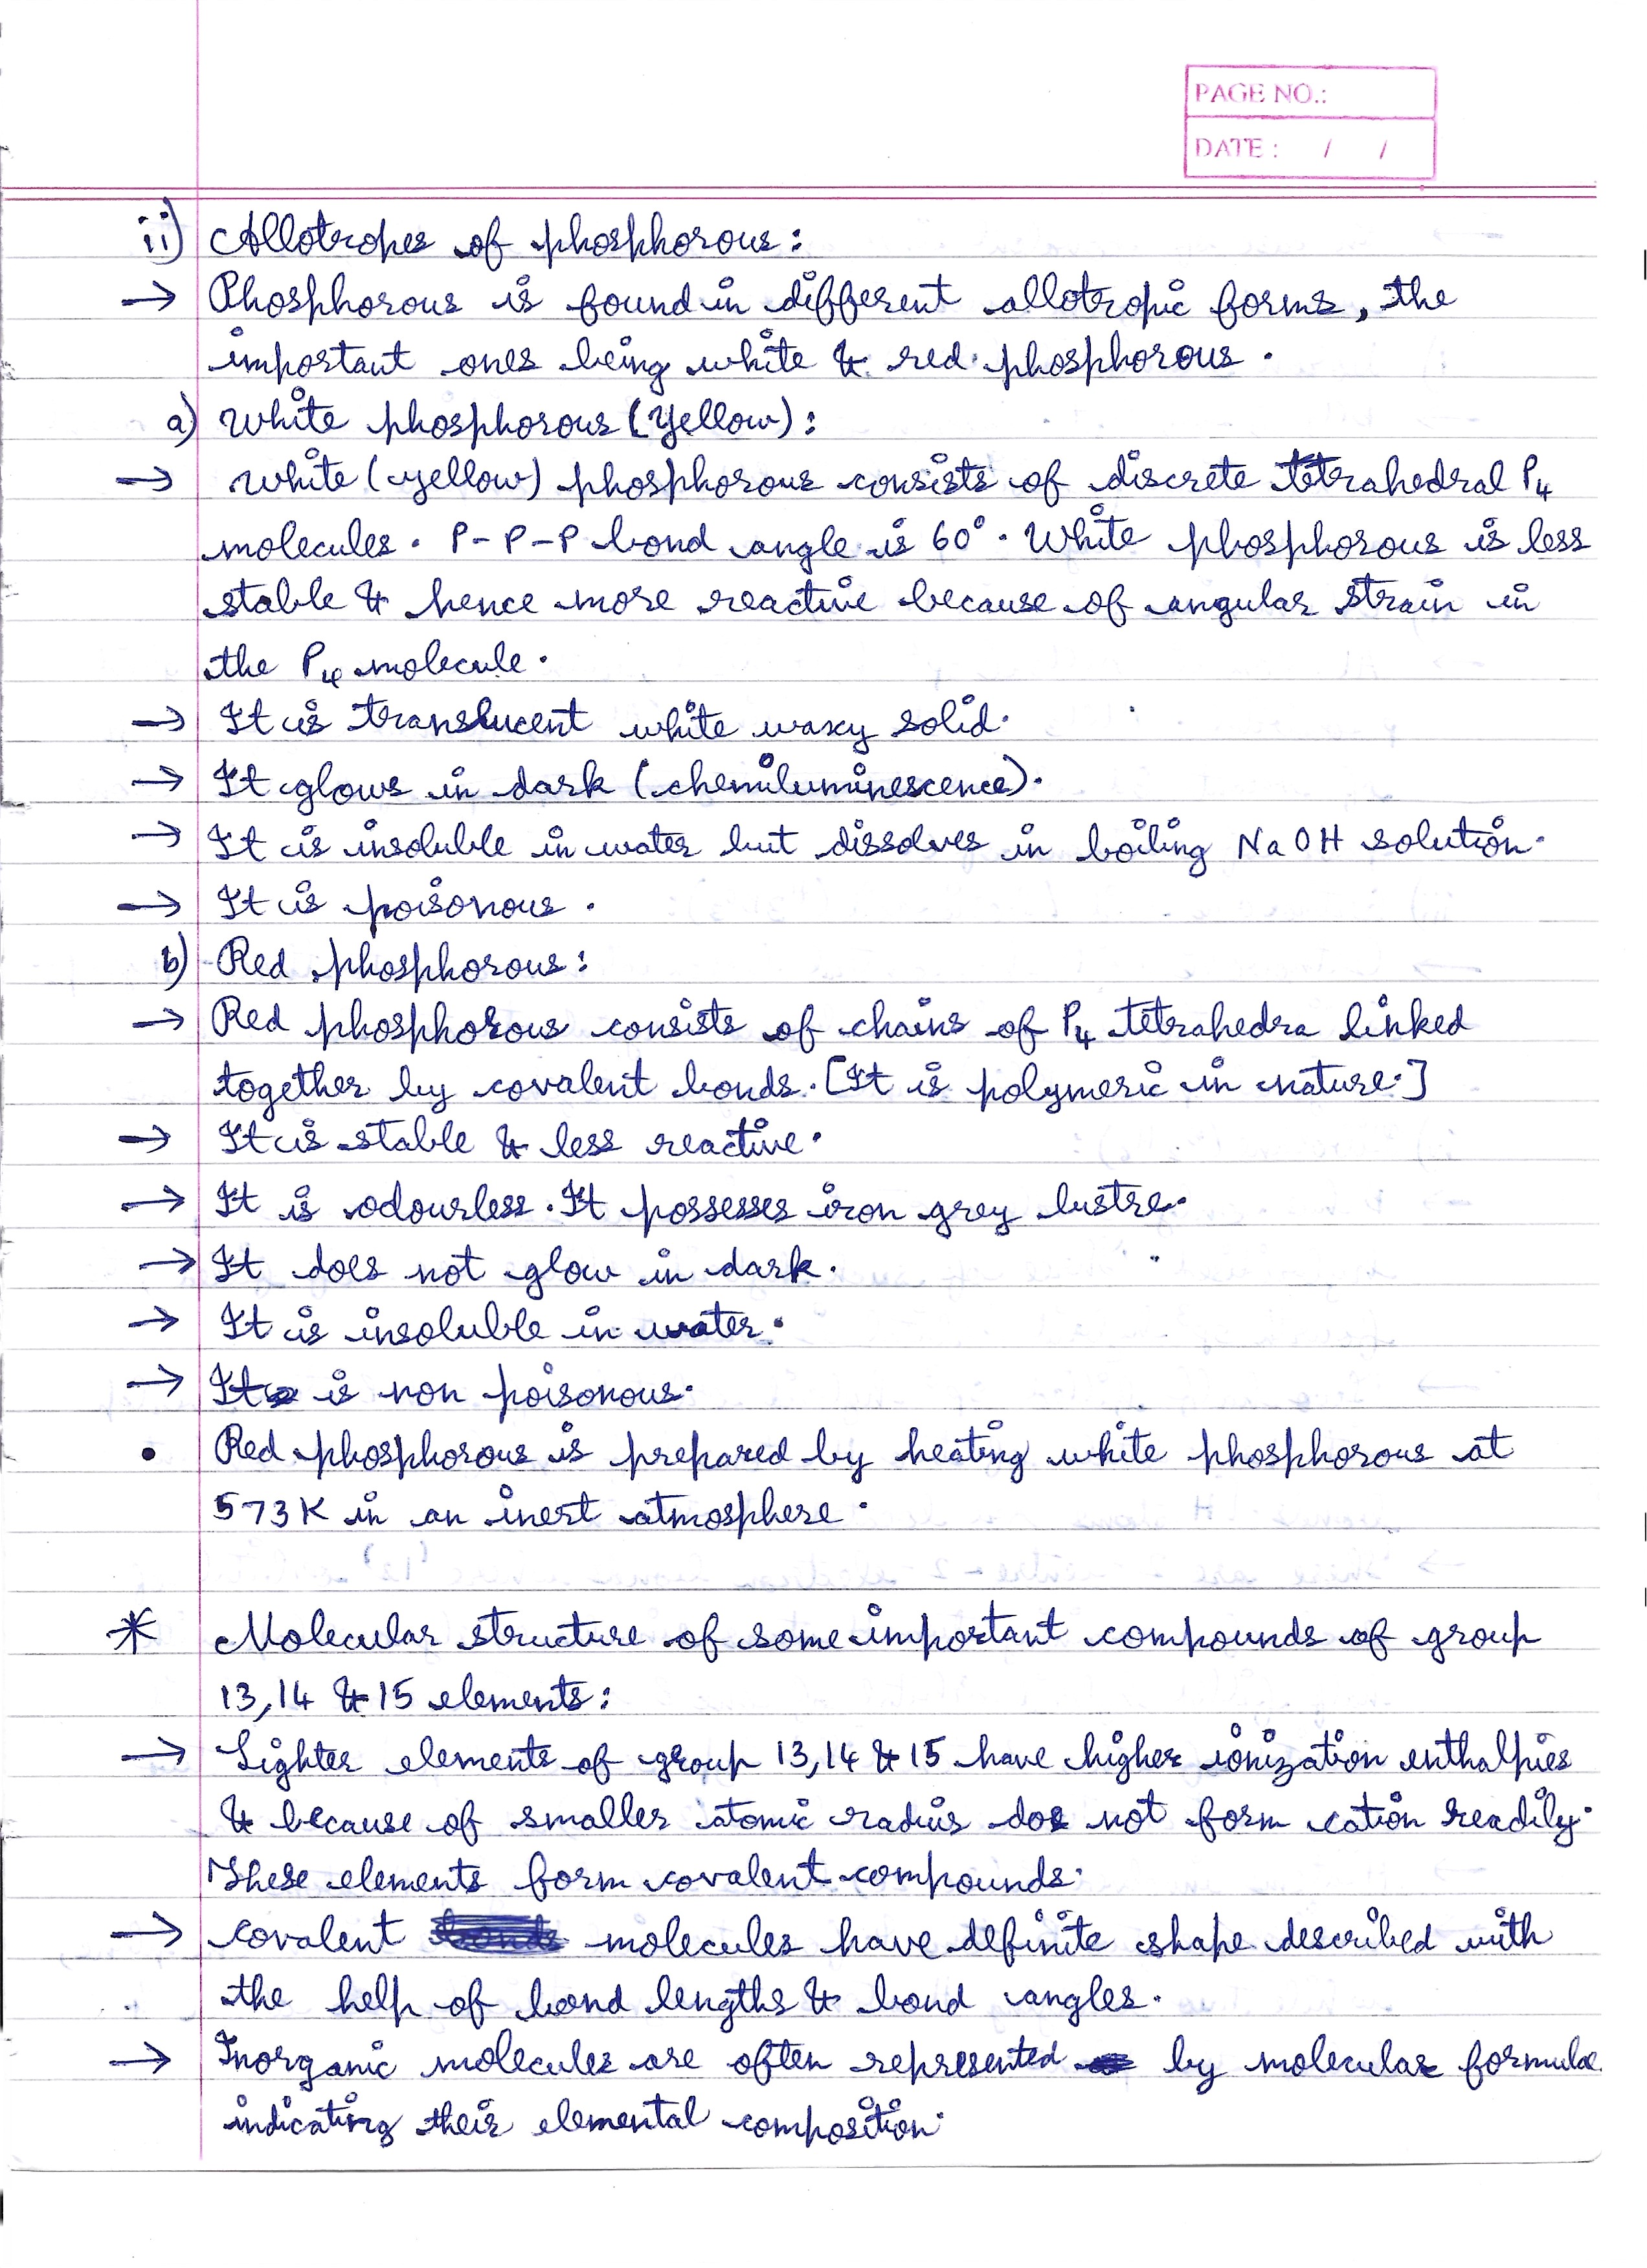 PAGE NO.:
DATE : / /
ii) Allotropes of phosphorous :
→ Phosphorous is found in different allotropic forms, the
important ones being white & red phosphorous.
a) White phosphorous (Yellow) :
→ White (yellow) phosphorous consists of discrete tetrahedral P₄
molecules. P-P-P bond angle is 60°. White phosphorous is less
stable & hence more reactive because of angular strain in
the P₄ molecule.
→ It is translucent white waxy solid.
→ It glows in dark (chemiluminescence).
→ It is insoluble in water but dissolves in boiling NaOH solution.
→ It is poisonous.
b) Red phosphorous :
→ Red phosphorous consists of chains of P₄ tetrahedra linked
together by covalent bonds. [It is polymeric in nature.]
→ It is stable & less reactive.
→ It is odourless. It possesses iron grey lustre.
→ It does not glow in dark.
→ It is insoluble in water.
→ It is non poisonous.
• Red phosphorous is prepared by heating white phosphorous at
573K in an inert atmosphere.
* Molecular structure of some important compounds of group
13, 14 & 15 elements :
→ Lighter elements of group 13, 14 & 15 have higher ionization enthalpies
& because of smaller atomic radius do not form cation readily.
These elements form covalent compounds.
→ covalent molecules have definite shape described with
the help of bond lengths & bond angles.
→ Inorganic molecules are often represented by molecular formulae
indicating their elemental composition.